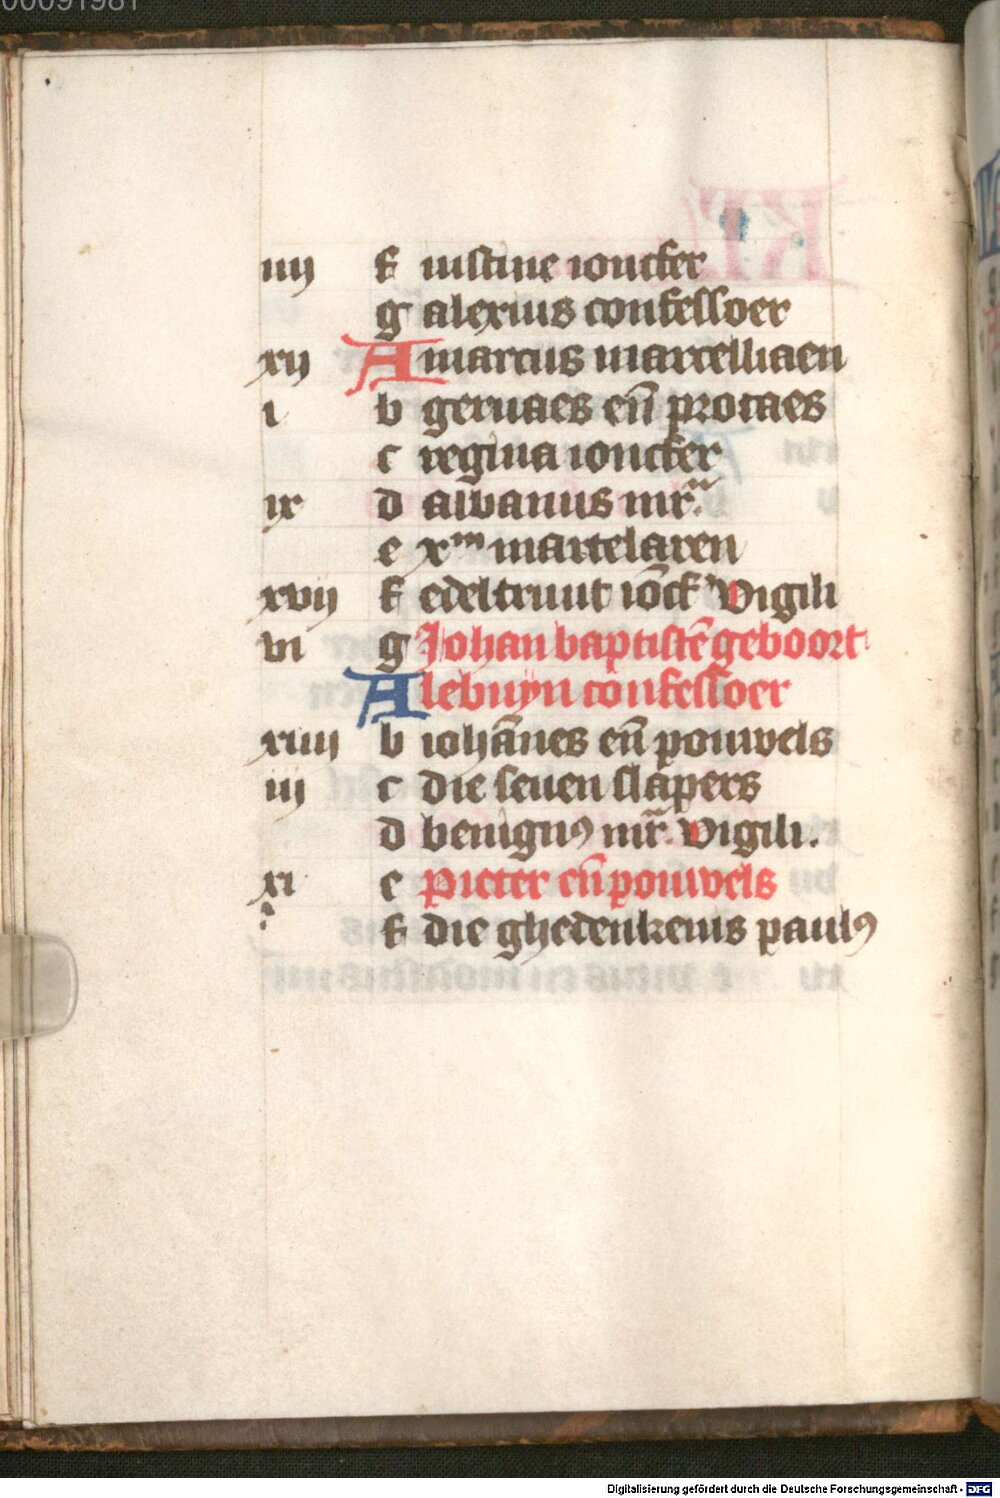 00091981
iiij f iustine ioncfer
g alexius confessoer
xij A marcus marcelliaen
i b geruaes eñ protaes
c regina ioncfer
ix d albanus mr̃.
e xm martelaren
xvij f edeltruut iōcf Vigili
vi g Johan baptistē geboort
A lebuyn confessoer
xiiij b iohānes eñ pouwels
iij c die seuen slapers
d benignꝰ mr̃. Vigili.
xi e pieter eñ pouwels
f die ghedenkenis paulꝰ
Digitalisierung gefördert durch die Deutsche Forschungsgemeinschaft - DFG